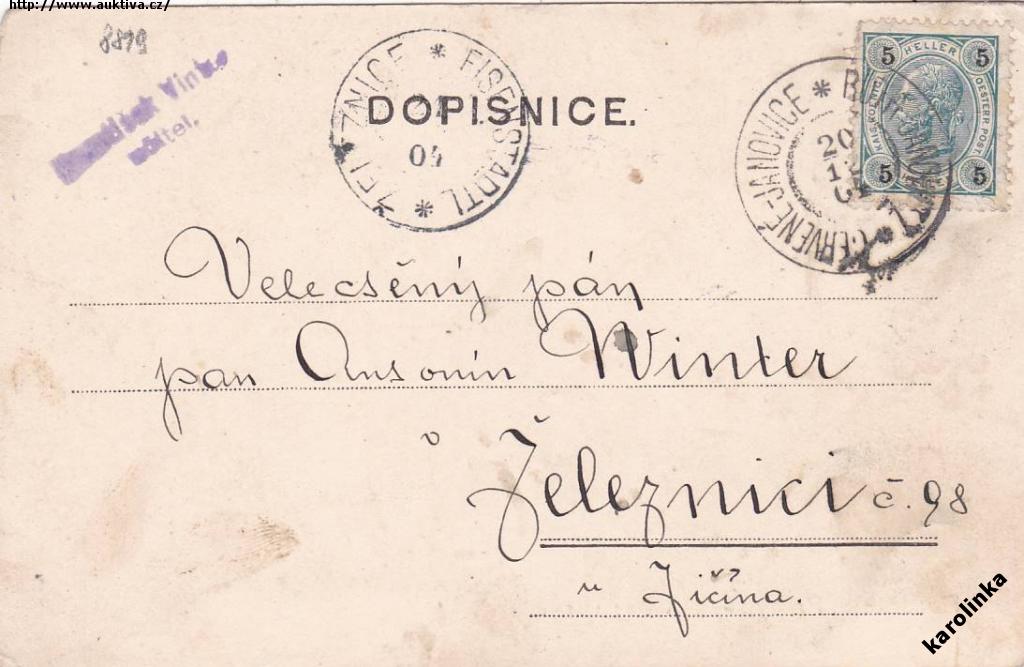 http://www.auktiva.cz/
8819
učitel.
ŽELEZNICE * EISENSTADTL *
04
DOPISNICE.
ČERVENÉ JANOVICE *
20
5 HELLER 5
KAIS. KOENIGL. OESTERR. POST
5 5
Velectěný pán
pan Antonín Winter
v Železnici č. 98
u Jičína.
karolinka